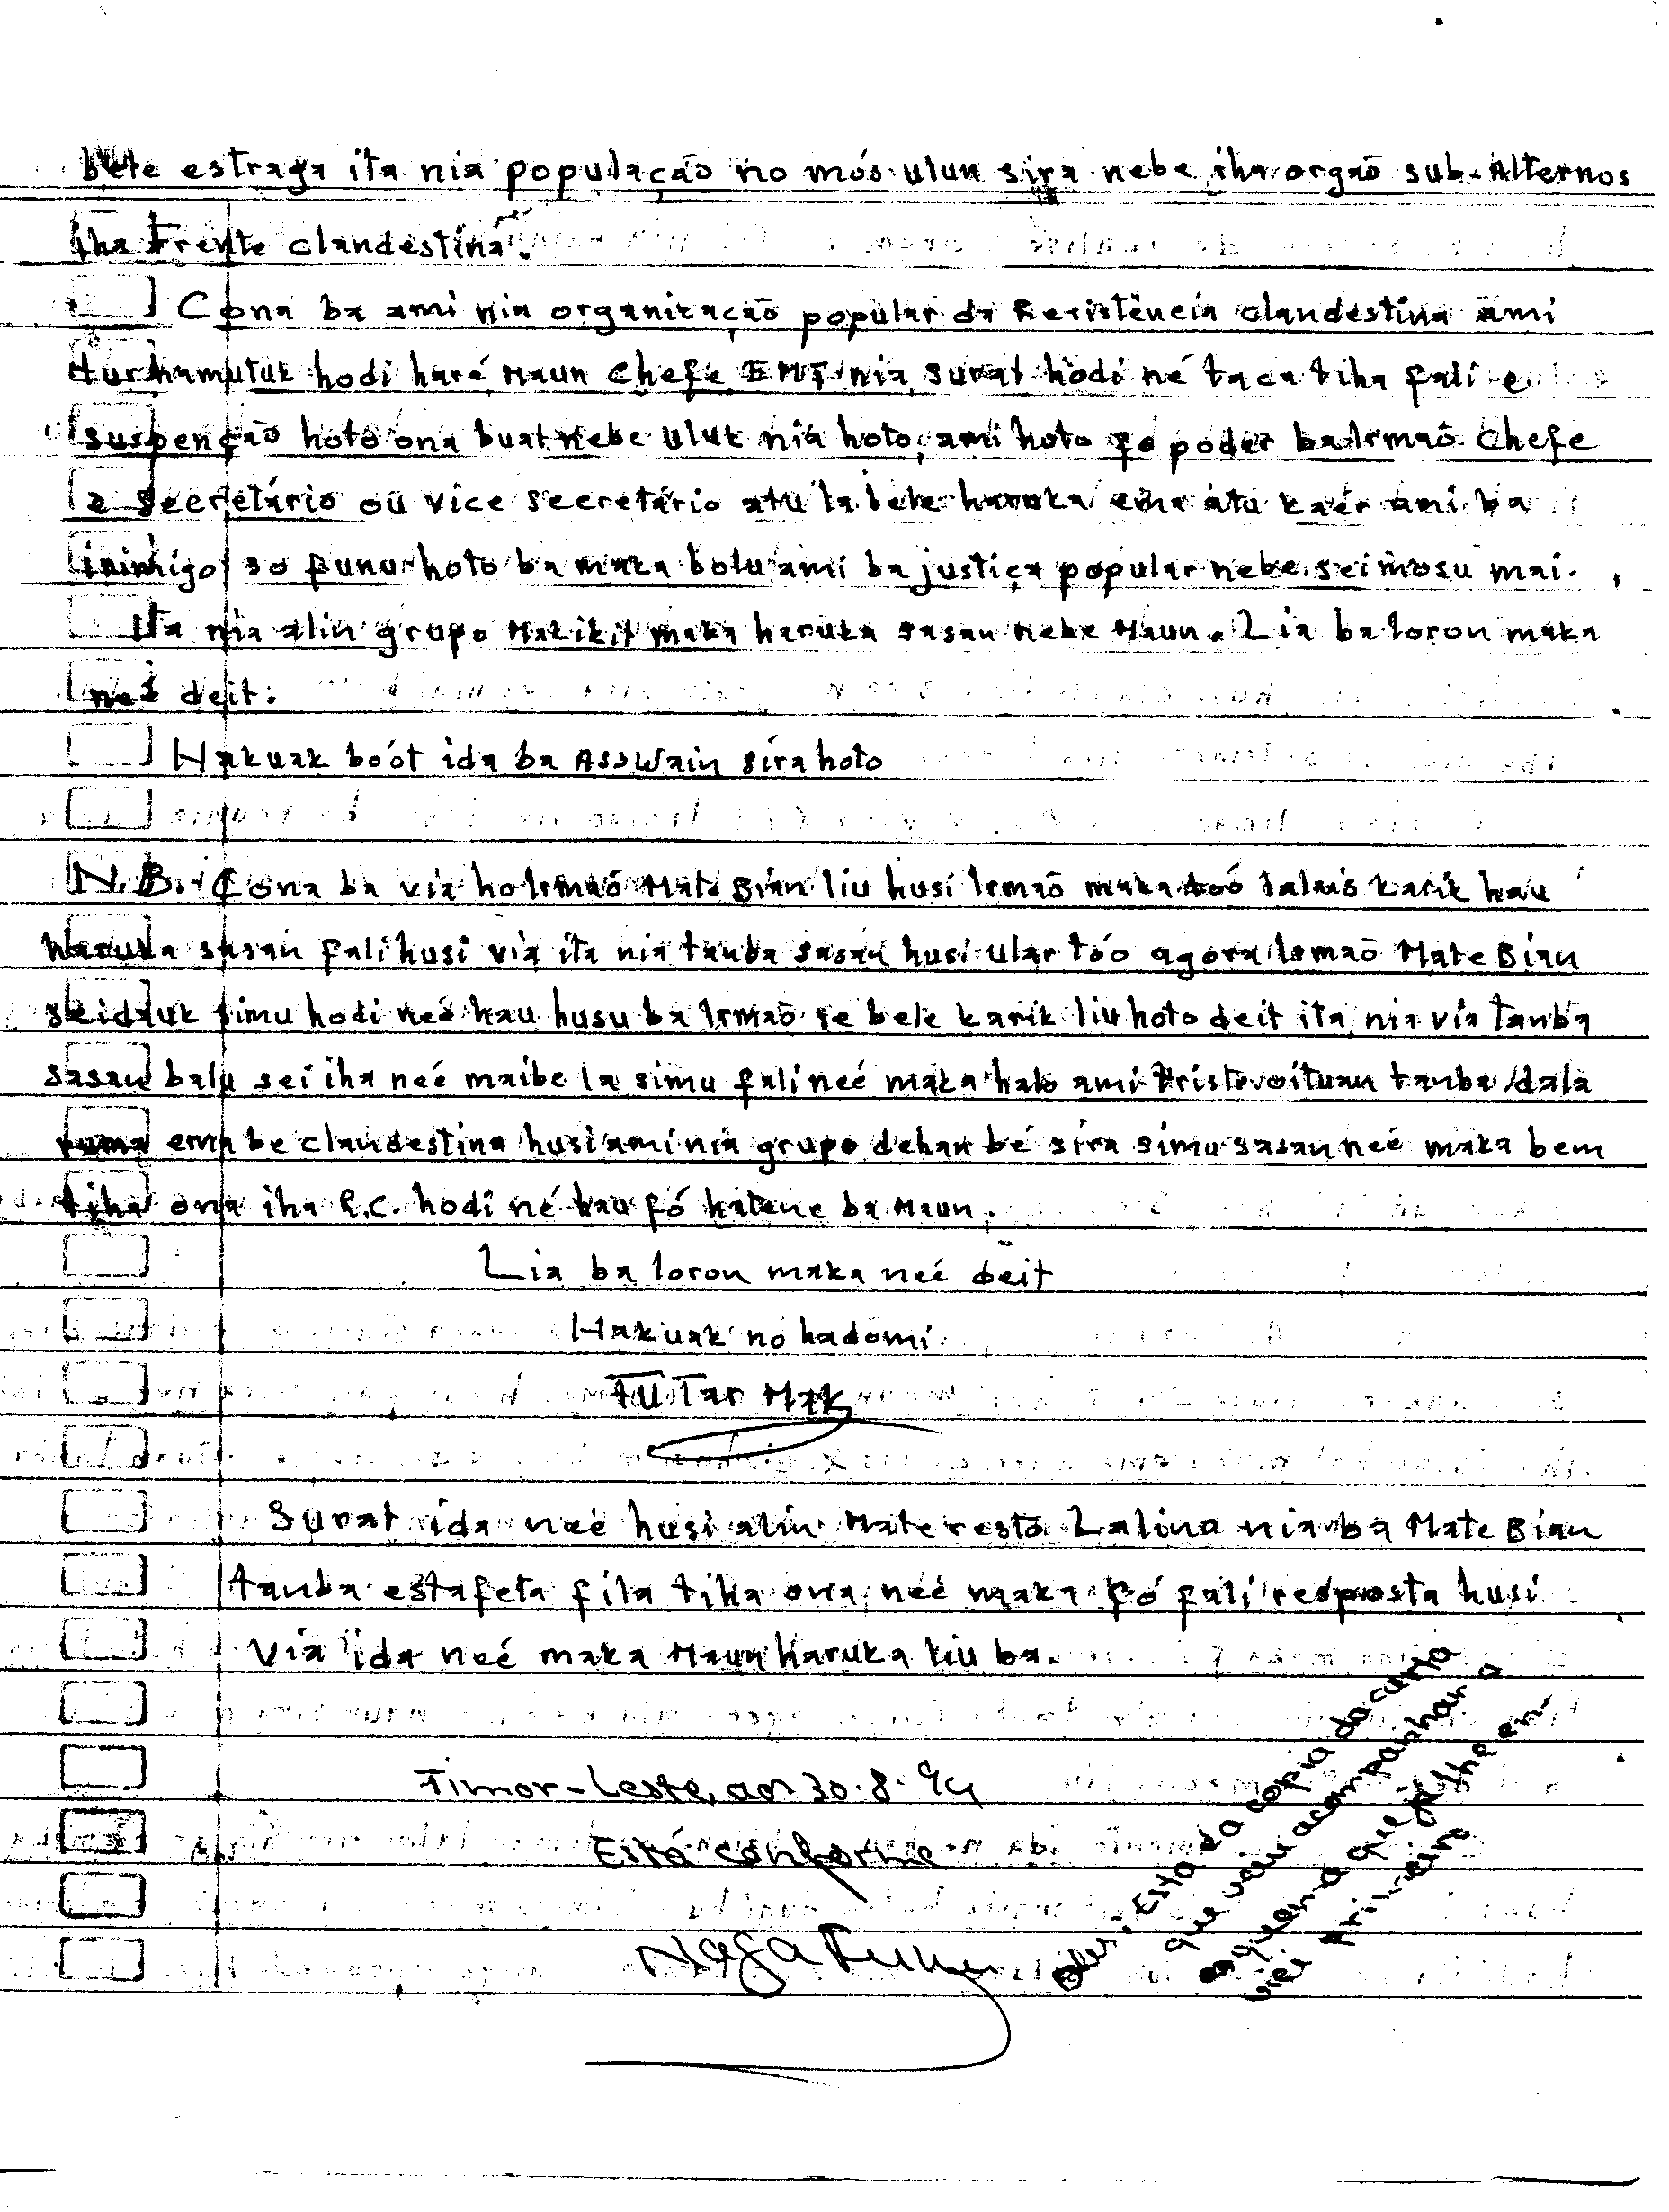 bele estraga ita nia população no mós ulun sira nebe iha orgaõ sub-Alternos
iha Frente clandestina.
Cona ba ami nia organização popular da Resistência clandestina ami
tur hamutuk hodi haré Maun Chefe EMF nia surat hodi né taca tiha fali e
suspenção hoto ona buat nebe uluk nia hoto, ami hoto fo poder ba Irmaõ Chefe
e Secretário ou vice secretário atu la bele haruka ema atu kaér ami ba
inimigo so funu hoto ba maka bolu ami ba justiça popular nebe sei mosu mai.
Ita nia alin grupo Makikit maka haruka sasan nebe Maun. Lia ba loron maka
neé deit.
Hakuak boót ida ba Asswain sira hoto
N.B. Cona ba via ho Irmaõ Mate Bian liu husi Irmaõ maka toó lalais karik hau
haruka sasan fali husi via ita nia tanba sasan husi ular tóo agora Irmaõ Mate Bian
seidauk simu hodi neé hau husu ba Irmaõ se bele karik liu hoto deit ita nia via tanba
sasan balu sei iha neé maibe la simu fali neé maka halo ami tristi oituan tanba dala
ruma ema be clandestina husi ami nia grupo dehan bé sira simu sasan neé maka bem
tiha ona iha R.C. hodi né hau fó hatene ba Maun.
Lia ba loron maka neé deit
Hakuak no hadomi
Tutar Mak
Surat ida neé husi alin Materesto Lalino nia ba Mate Bian
tanba estafeta fila tiha ona neé maka fó fali resposta husi
via ida neé maka Maun haruka liu ba.
Timor-Leste, aos 30.8.94
Está conforme
Obs.: Esta da copia da carta
que veiu acompanhar a
esquema que já lhe en-
viei primeiro